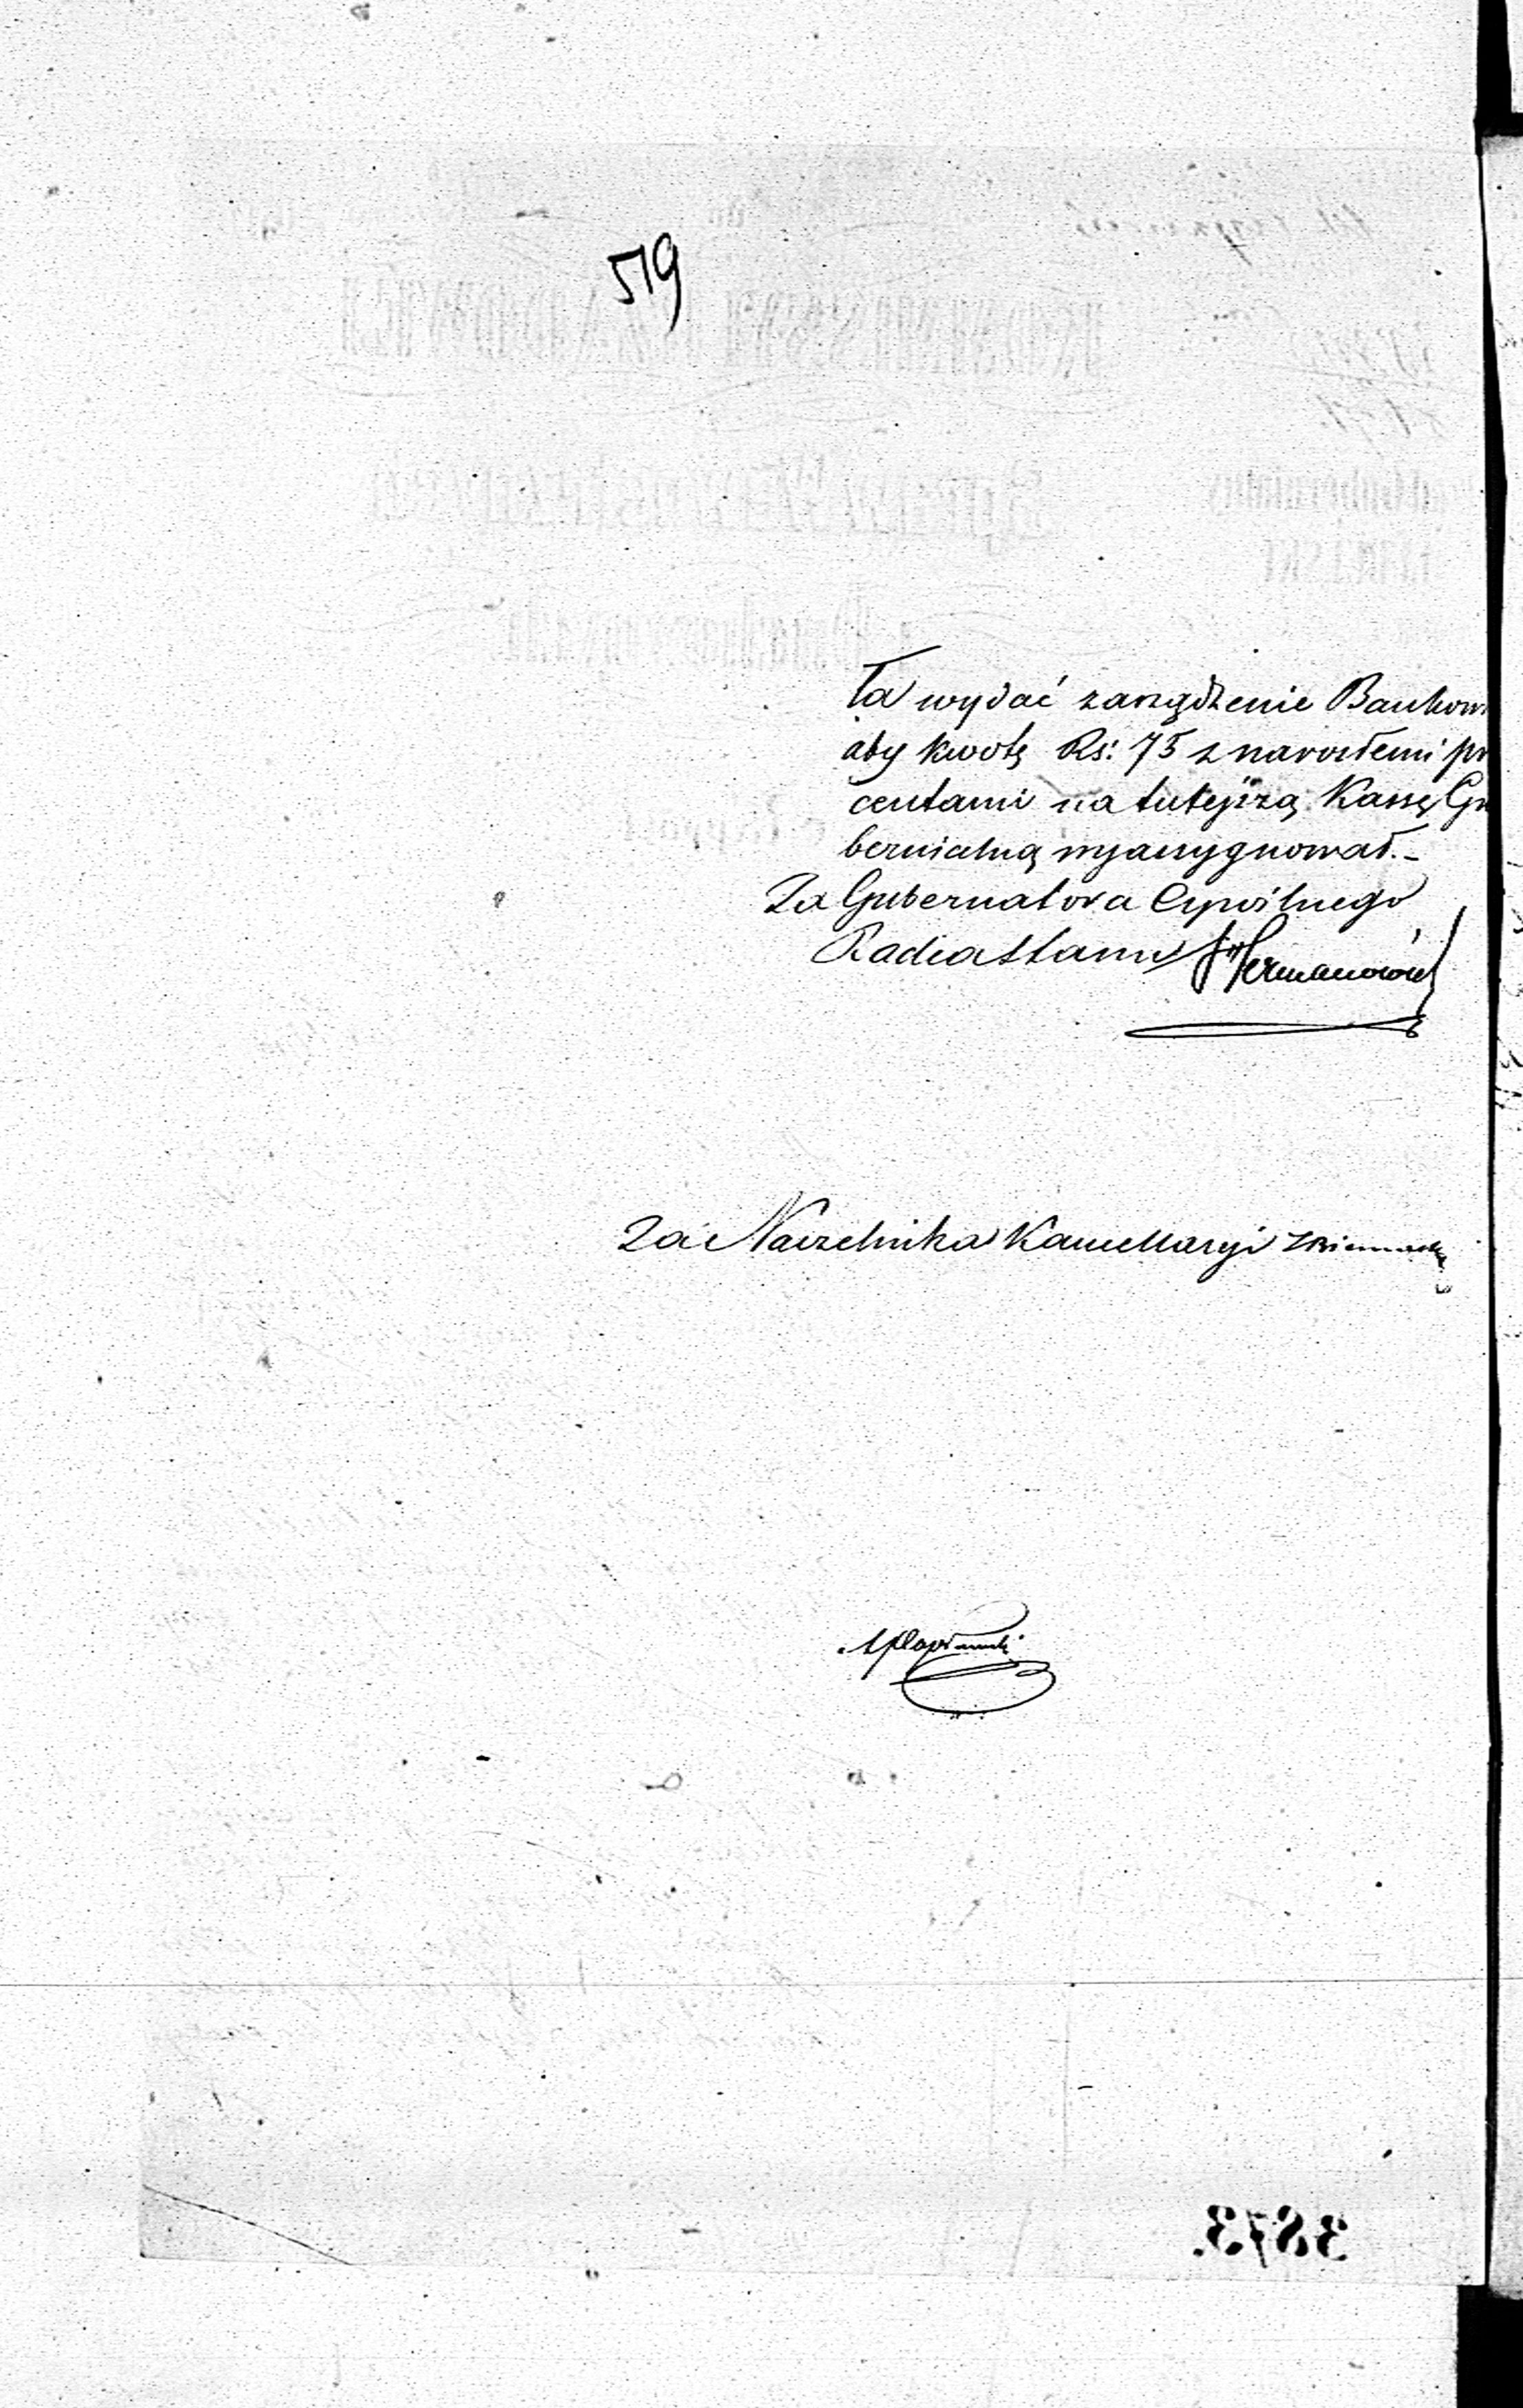 519
ła wydać zarządzenie Bankow
aby kwotę Rs: 75 z narosłemi pr
centami na tutejszą Kassę Gu
bernialną wyassygnował.-
Za Gubernatora Cywilnego
Radca Stanu Hermanowicz
Za Naczelnika Kancellaryi
3873.